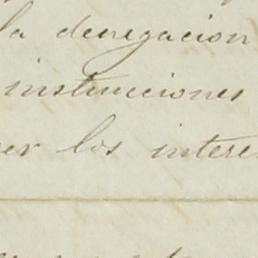 la denegacion
instrucciones
er los interes